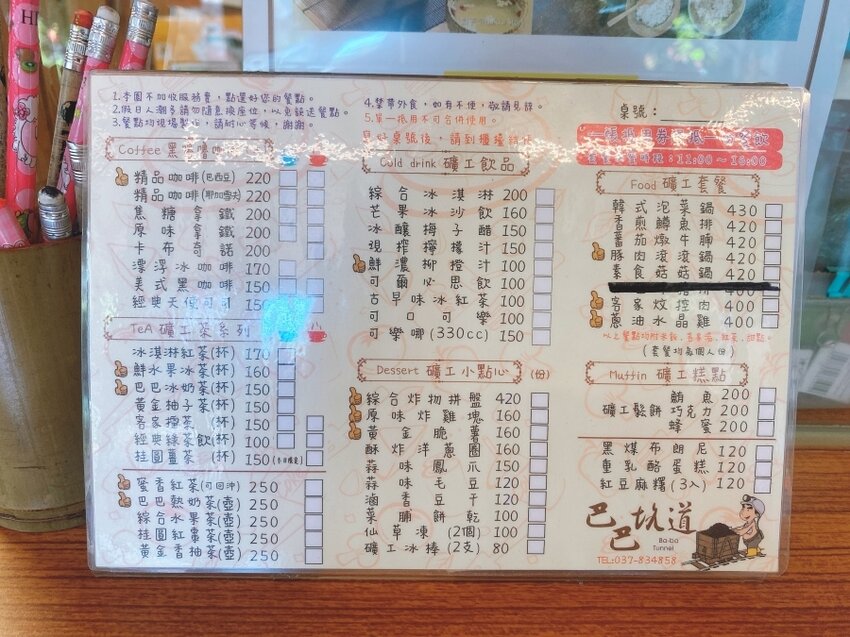 1.本園不加收服務費，點選好您的餐點。
2.假日人潮多請勿隨意換座位，以免誤送餐點。
3.餐點均現場製作，請耐心等候，謝謝。
4.禁帶外食，如有不便，敬請見諒。
5.單一抵用不可合併使用。
桌號後，請到櫃檯結
桌號：
Coffee 黑嚕嚕咖
精品咖啡(巴西豆) 220
精品咖啡(耶加雪夫) 220
焦糖拿鐵 200
原味拿鐵 200
卡布奇諾 200
漂浮冰咖啡 170
美式黑咖啡 150
經典天使可可 150
TeA 礦工茶系列
冰淇淋紅茶(杯) 170
鮮水果冰茶(杯) 160
巴巴冰奶茶(杯) 150
黃金柚子茶(杯) 150
客家擂茶(杯) 150
經典綠茶飲(杯) 100
桂圓薑茶(杯) 150(冬日限定)
蜜香紅茶(可回沖) 250
巴巴熱奶茶(壺) 250
綜合水果茶(壺) 250
桂圓紅棗茶(壺) 250
黃金香柚茶(壺) 250
Cold drink 礦工飲品
綜合冰淇淋 200
芒果冰沙飲 160
冰釀梅子醋 150
現榨檸檬汁 150
鮮濃柳橙汁 100
可爾必思飲 100
古早味冰紅茶 100
可口可樂 100
可樂哪(330cc) 150
Dessert 礦工小點心 (份)
綜合炸物拼盤 420
原味炸雞塊 160
黃金脆薯 160
酥炸洋蔥圈 160
蒜味鳳爪 150
蒜味毛豆 120
滷香豆干 120
菜脯餅乾 100
仙草凍(2個) 100
礦工冰棒(2支) 80
一張抵用券可抵一份餐飲
套餐供應時段：11:00～16:00
Food 礦工套餐
韓式泡菜鍋 430
香煎鯛魚排 420
蕃茄燉牛腩 420
豚肉滾滾鍋 420
素食菇菇鍋 420
400
客家炆控肉 400
蔥油水晶雞 400
(套餐均為個人份)
Muffin 礦工糕點
礦工鬆餅
鮪魚 200
巧克力 200
蜂蜜 200
黑煤布朗尼 120
重乳酪蛋糕 120
紅豆麻糬(3入) 120
巴巴坑道
Ba-ba Tunnel
TEL:037-834858